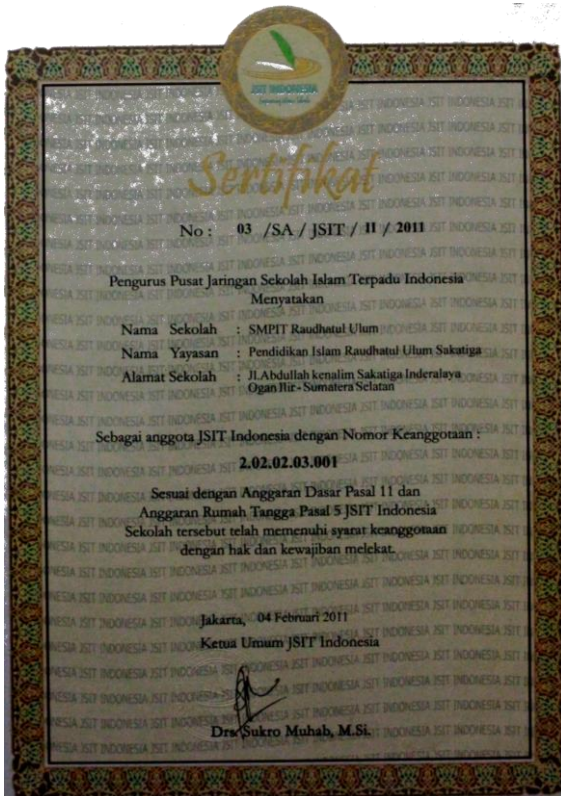 JSIT INDONESIA
Sertifikat
No : 03 /SA / JSIT / II / 2011
Pengurus Pusat Jaringan Sekolah Islam Terpadu Indonesia
Menyatakan
Nama Sekolah : SMPIT Raudhatul Ulum
Nama Yayasan : Pendidikan Islam Raudhatul Ulum Sakatiga
Alamat Sekolah : Jl.Abdullah kenalim Sakatiga Inderalaya
Ogan Ilir - Sumatera Selatan
Sebagai anggota JSIT Indonesia dengan Nomor Keanggotaan :
2.02.02.03.001
Sesuai dengan Anggaran Dasar Pasal 11 dan
Anggaran Rumah Tangga Pasal 5 JSIT Indonesia
Sekolah tersebut telah memenuhi syarat keanggotaan
dengan hak dan kewajiban melekat.
Jakarta, 04 Februari 2011
Ketua Umum JSIT Indonesia
Drs. Sukro Muhab, M.Si.